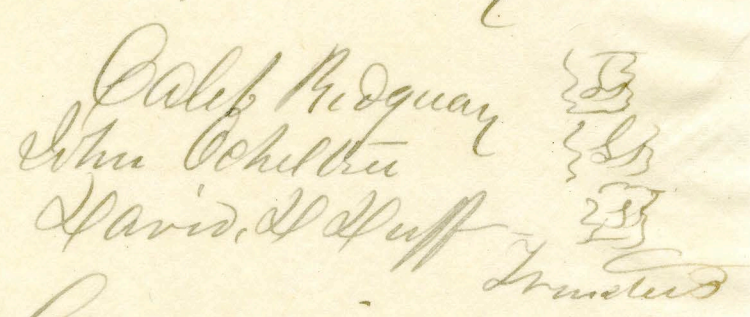 Caleb Ridguay {LS}
John Ochiltree {LS}
David, H Huff {LS}
Trustees